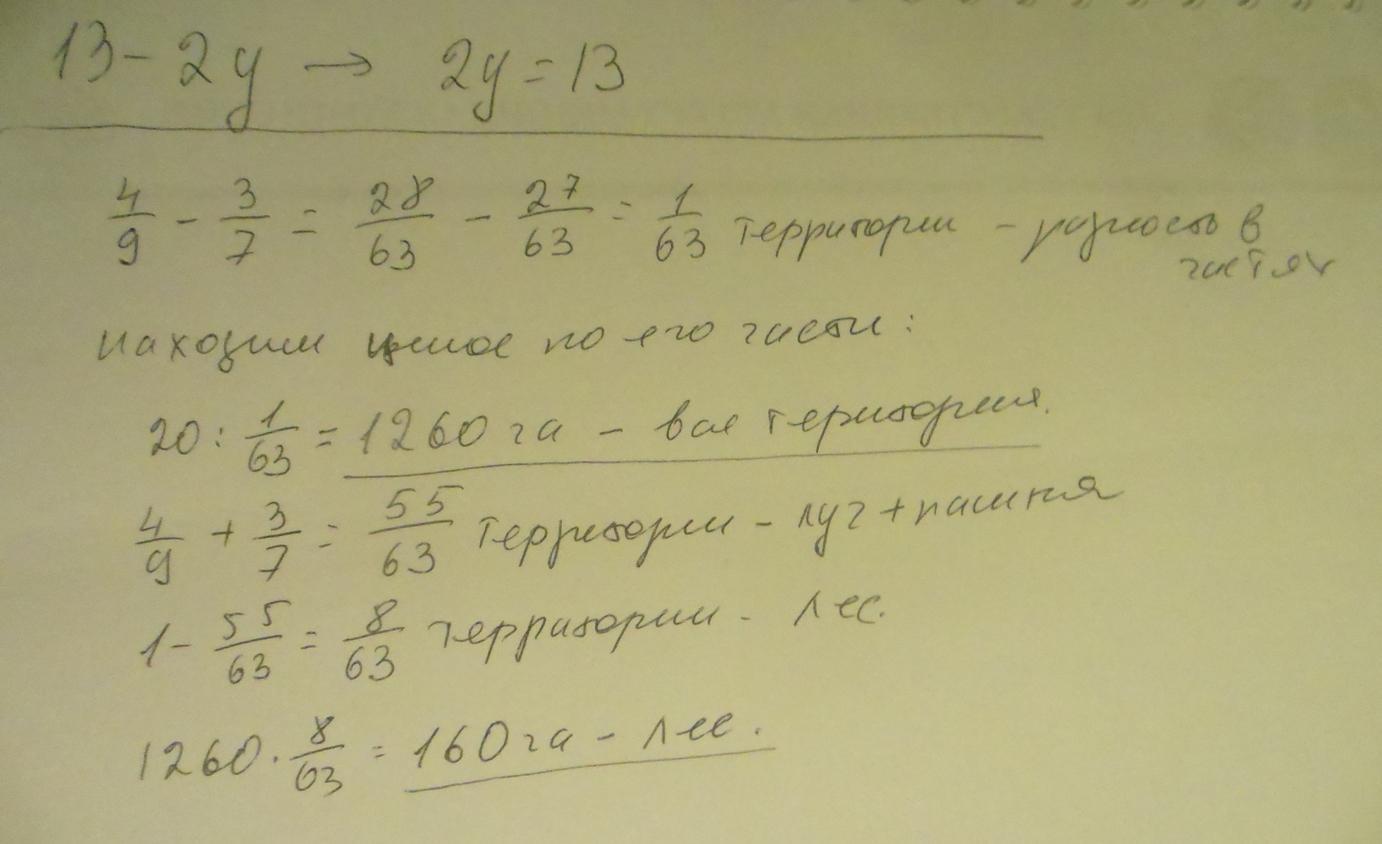 13 - 2y → 2y = 13
4/9 - 3/7 = 28/63 - 27/63 = 1/63 территории - разность в
частях
находим целое по его части:
20 : 1/63 = 1260 га - вся територия.
4/9 + 3/7 = 55/63 территории - луг + пашня
1 - 55/63 = 8/63 территории - лес.
1260 · 8/63 = 160 га - лес.